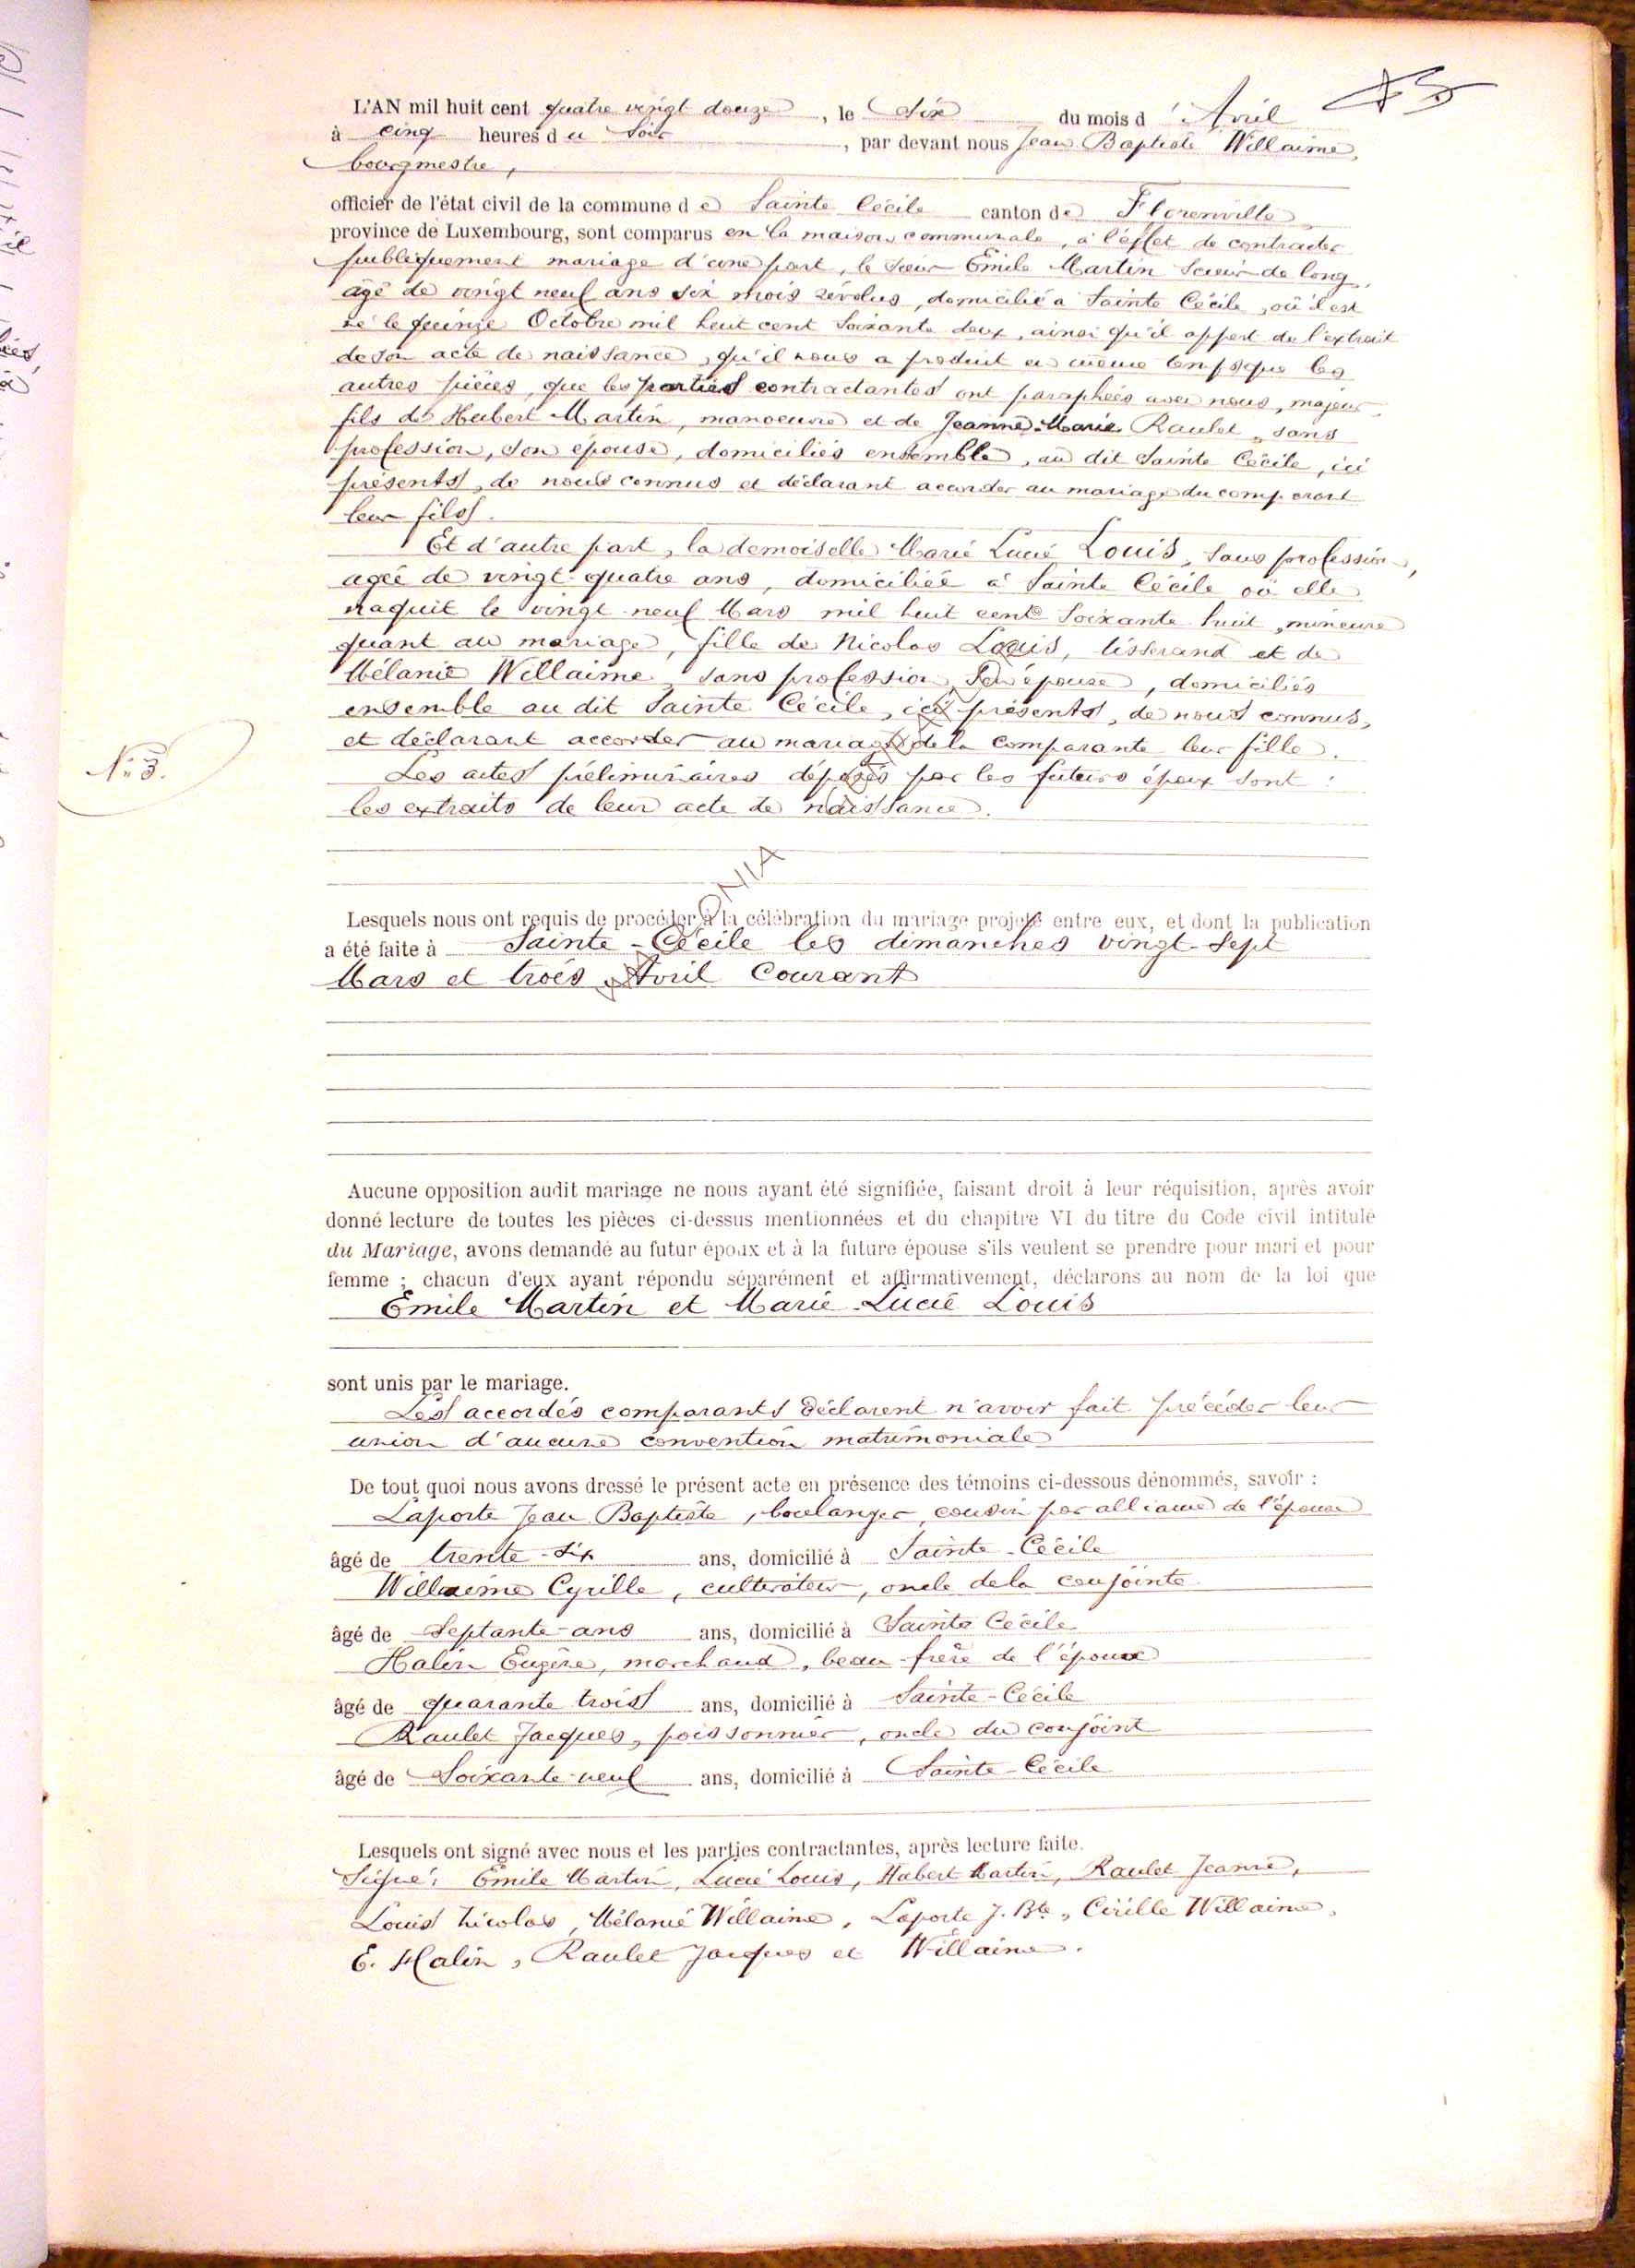 L'AN mil huit cent quatre vingt douze, le Six du mois d'Avril
à cinq heures du Soir, par devant nous Jean Baptiste Willaime,
bourgmestre,
officier de l'état civil de la commune de Sainte Cécile canton de Florenville,
province de Luxembourg, sont comparus en la maison communale, à l'effet de contracter
publiquement mariage d'une part, le sieur Emile Martin scieur de long,
âgé de vingt neuf ans six mois révolus, domicilié à Sainte Cécile, où il est
né le quinze Octobre mil huit cent soixante deux, ainsi qu'il appert de l'extrait
de son acte de naissance, qu'il nous a produit en même temps que les
autres pièces, que les parties contractantes ont paraphées avec nous, majeur,
fils de Hubert Martin, manoeuvre et de Jeanne-Marie Raulet, sans
profession, son épouse, domiciliés ensemble, au dit Sainte Cécile, ici
présents, de nous connus et déclarant accorder au mariage du comparant
leur fils.
Et d'autre part, la demoiselle Marie Lucie Louis, sans profession,
agée de vingt-quatre ans, domiciliée à Sainte Cécile où elle
naquit le vingt-neuf Mars mil huit cent soixante huit, mineure
quant au mariage, fille de Nicolas Louis, tisserand et de
Mélanie Willaime, sans profession, son épouse, domiciliés
ensemble au dit Sainte Cécile, ici présents, de nous connus,
et déclarant accorder au mariage de la comparante leur fille.
N° 3.
Les actes préliminaires déposés par les futurs époux sont :
les extraits de leur acte de naissance.
Lesquels nous ont requis de procéder à la célébration du mariage projeté entre eux, et dont la publication
a été faite à Sainte-Cécile les dimanches vingt-sept
Mars et trois Avril Courant
Aucune opposition audit mariage ne nous ayant été signifiée, faisant droit à leur réquisition, après avoir
donné lecture de toutes les pièces ci-dessus mentionnées et du chapitre VI du titre du Code civil intitulé
du Mariage, avons demandé au futur époux et à la future épouse s'ils veulent se prendre pour mari et pour
femme ; chacun d'eux ayant répondu séparément et affirmativement, déclarons au nom de la loi que
Emile Martin et Marie-Lucie Louis
sont unis par le mariage.
Les accordés comparants déclarent n'avoir fait précéder leur
union d'aucune convention matrimoniale
De tout quoi nous avons dressé le présent acte en présence des témoins ci-dessous dénommés, savoir :
Laporte Jean Baptiste, boulanger, cousin par alliance de l'épouse
âgé de trente-six ans, domicilié à Sainte-Cécile
Willaime Cyrille, cultivateur, oncle de la conjointe
âgé de Septante-ans ans, domicilié à Sainte Cécile
Halin Eugène, marchand, beau-frère de l'époux
âgé de quarante trois ans, domicilié à Sainte-Cécile
Raulet Jacques, poissonnier, oncle du conjoint
âgé de Soixante-neuf ans, domicilié à Sainte-Cécile
Lesquels ont signé avec nous et les parties contractantes, après lecture faite.
Signé: Emile Martin, Lucie Louis, Hubert Martin, Raulet Jeanne,
Louis Nicolas, Mélanie Willaime, Laporte J. Bte, Cirille Willaime,
E. Halin, Raulet Jacques et Willaime.